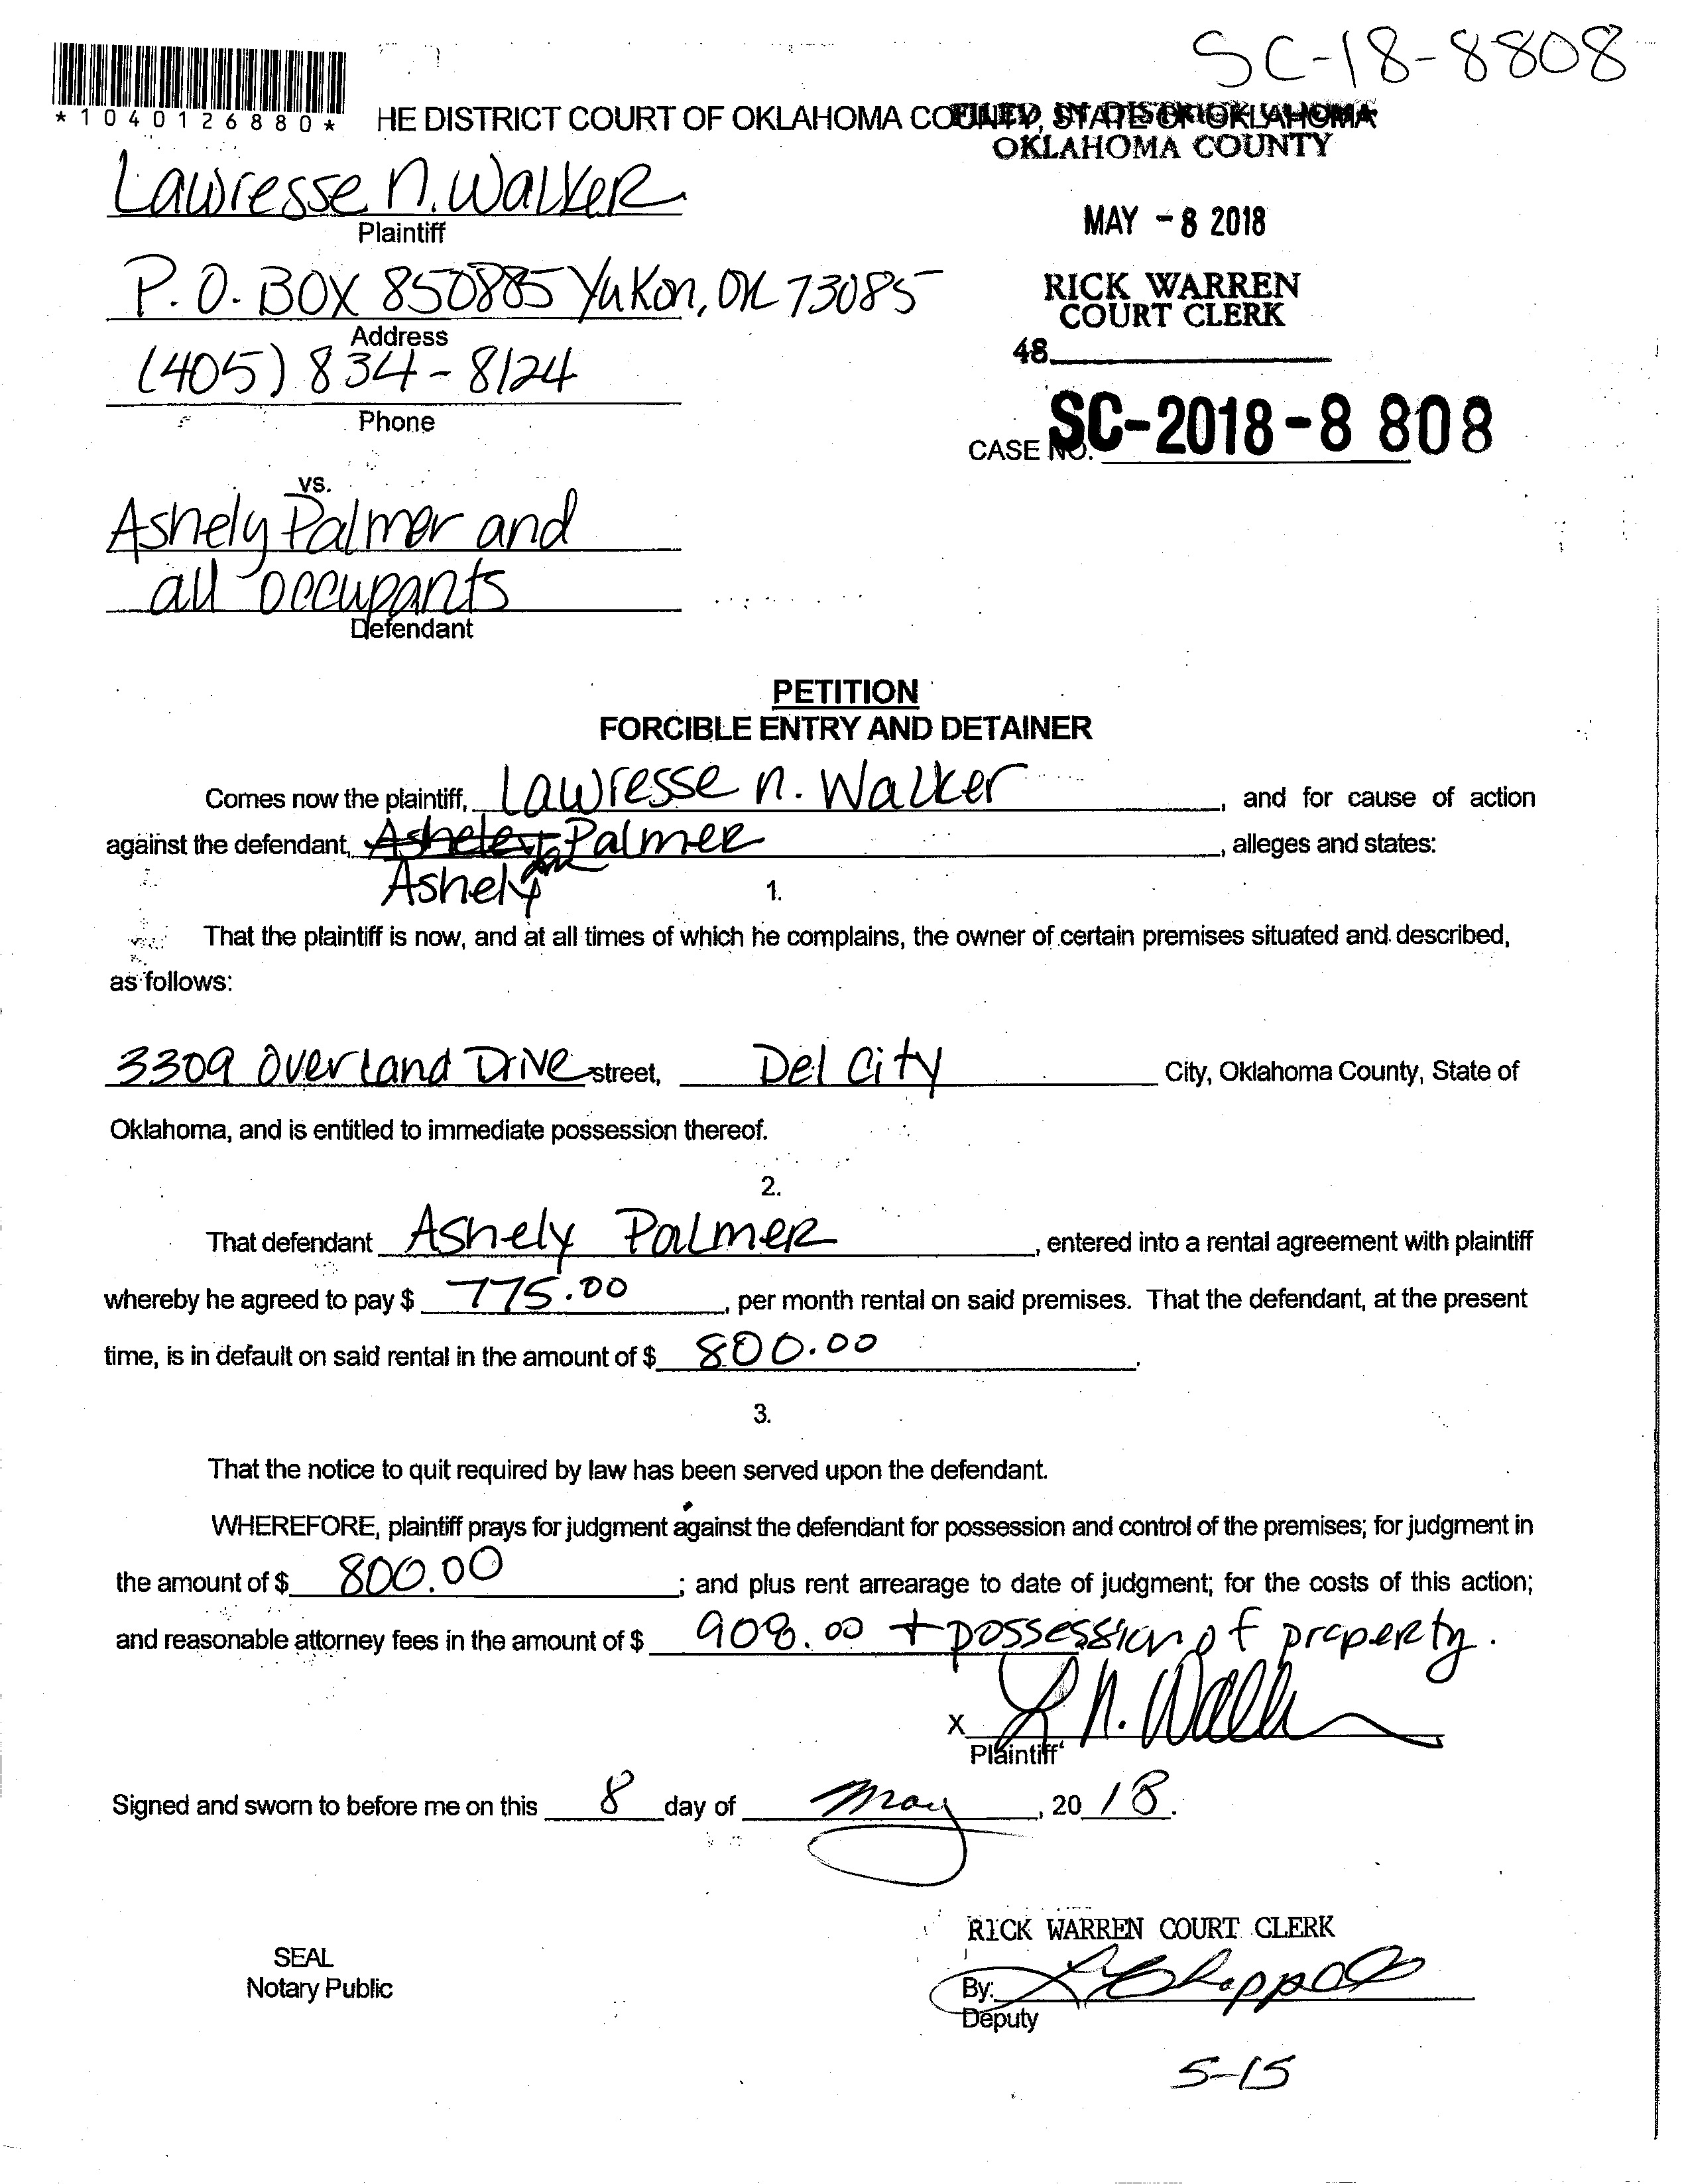 SC-18-8808
*1040126880*
HE DISTRICT COURT OF OKLAHOMA COUNTY, STATE OF OKLAHOMA
OKLAHOMA COUNTY
Lawresse N. Walker
Plaintiff
MAY - 8 2018
P.O. BOX 850885 Yukon, OK 73085
Address
RICK WARREN
COURT CLERK
(405) 834-8124
Phone
48
CASE NO. SC-2018-8 808
vs.
Ashely Palmer and
all occupants
Defendant
PETITION
FORCIBLE ENTRY AND DETAINER
Comes now the plaintiff, Lawresse N. Walker, and for cause of action
against the defendant, Palmer, alleges and states:
Ashely
1.
That the plaintiff is now, and at all times of which he complains, the owner of certain premises situated and described,
as follows:
3309 Overland Drive street, Del City City, Oklahoma County, State of
Oklahoma, and is entitled to immediate possession thereof.
2.
That defendant Ashely Palmer, entered into a rental agreement with plaintiff
whereby he agreed to pay $ 775.00, per month rental on said premises. That the defendant, at the present
time, is in default on said rental in the amount of $ 800.00.
3.
That the notice to quit required by law has been served upon the defendant.
WHEREFORE, plaintiff prays for judgment against the defendant for possession and control of the premises; for judgment in
the amount of $ 800.00; and plus rent arrearage to date of judgment; for the costs of this action;
and reasonable attorney fees in the amount of $ 908.00 + possession of property.
X L N. Walker
Plaintiff
Signed and sworn to before me on this 8 day of May, 20 18.
RICK WARREN COURT CLERK
SEAL
Notary Public
By:
Deputy
5-15